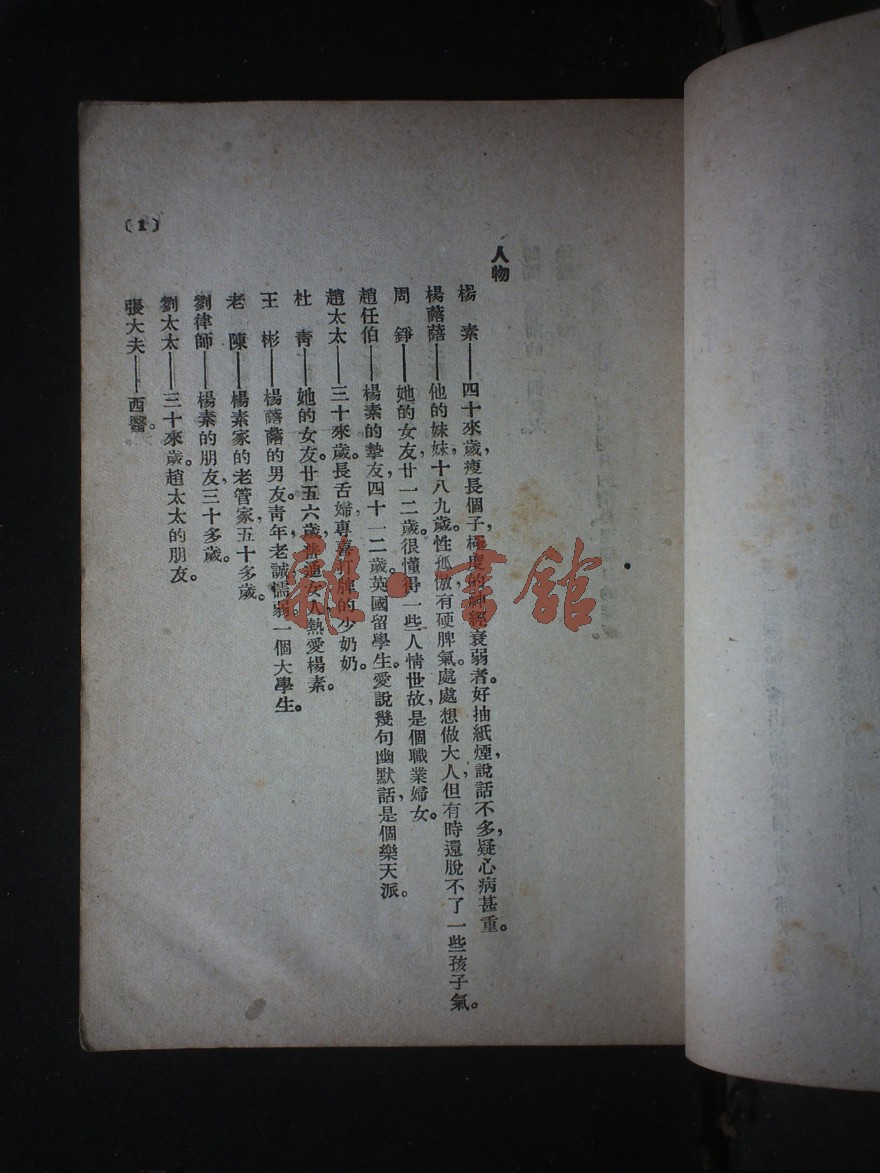 人物
楊　素——四十來歲,瘦長個子,極度的神經衰弱者。好抽紙煙,說話不多,疑心病甚重。
楊蓓蓓——他的妹妹,十八九歲。性孤傲,有硬脾氣。處處想做大人,但有時還脫不了一些孩子氣。
周　錚——她的女友,廿一二歲。很懂得一些人情世故,是個職業婦女。
趙任伯——楊素的摯友,四十一二歲。英國留學生。愛說幾句幽默話,是個樂天派。
趙太太——三十來歲。長舌婦,專喜打牌的少奶奶。
杜　靑——她的女友,廿五六歲,普通女人,熱愛楊素。
王　彬——楊蓓蓓的男友。靑年老誠,懦弱。一個大學生。
老　陳——楊素家的老管家,五十多歲。
劉律師——楊素的朋友,三十多歲。
劉太太——三十來歲。趙太太的朋友。
張大夫——西醫。
(1)
雜·書館